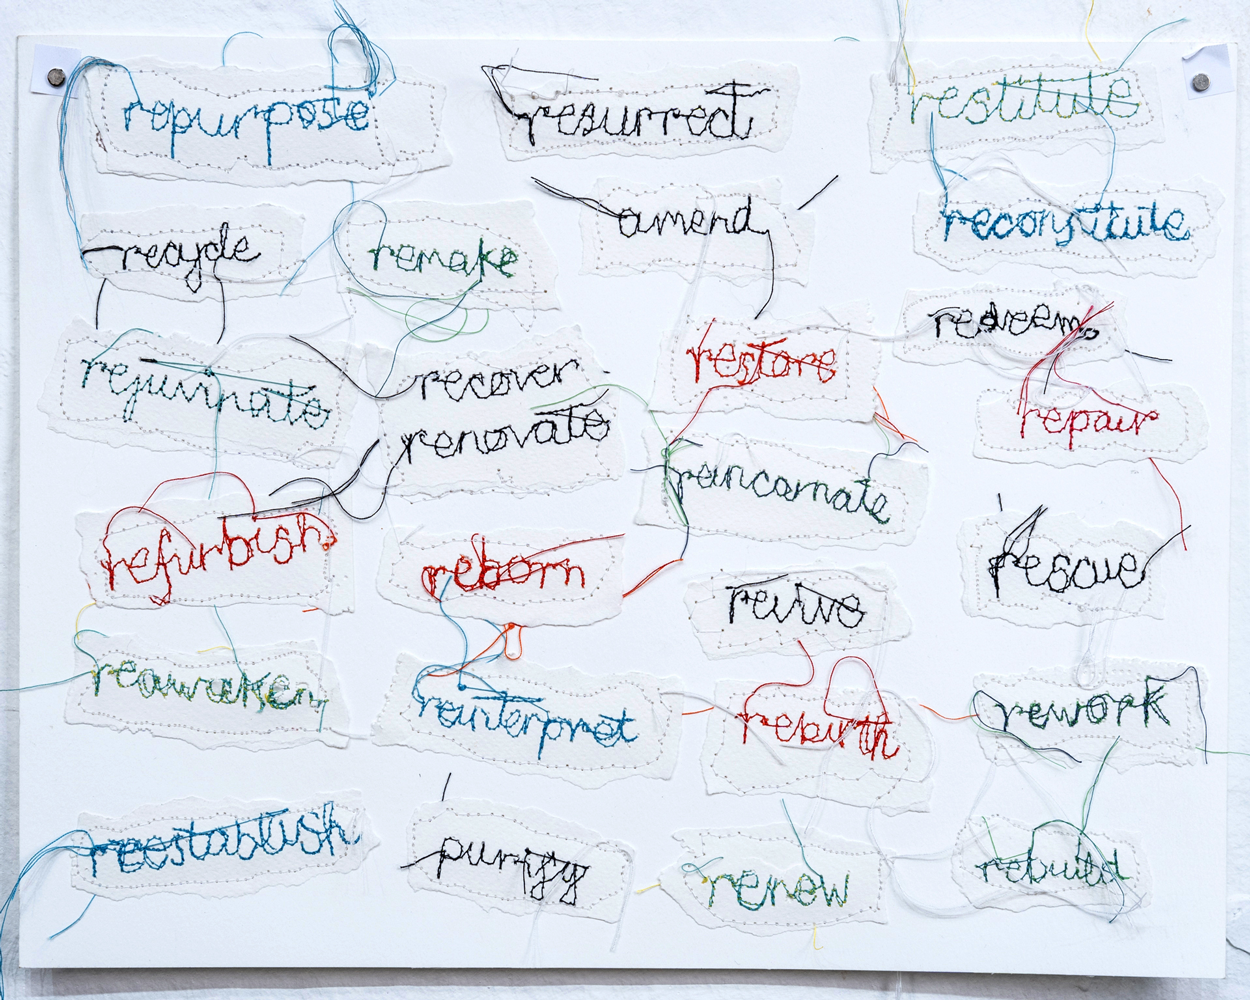 repurpose
resurrect
restitute
recycle
remake
amend
reconstitute
rejuvinate
recover
renovate
restore
redeem
repair
reincarnate
refurbish
reborn
revive
rescue
reawaken
reinterpret
rebirth
rework
reestablish
purify
renew
rebuild